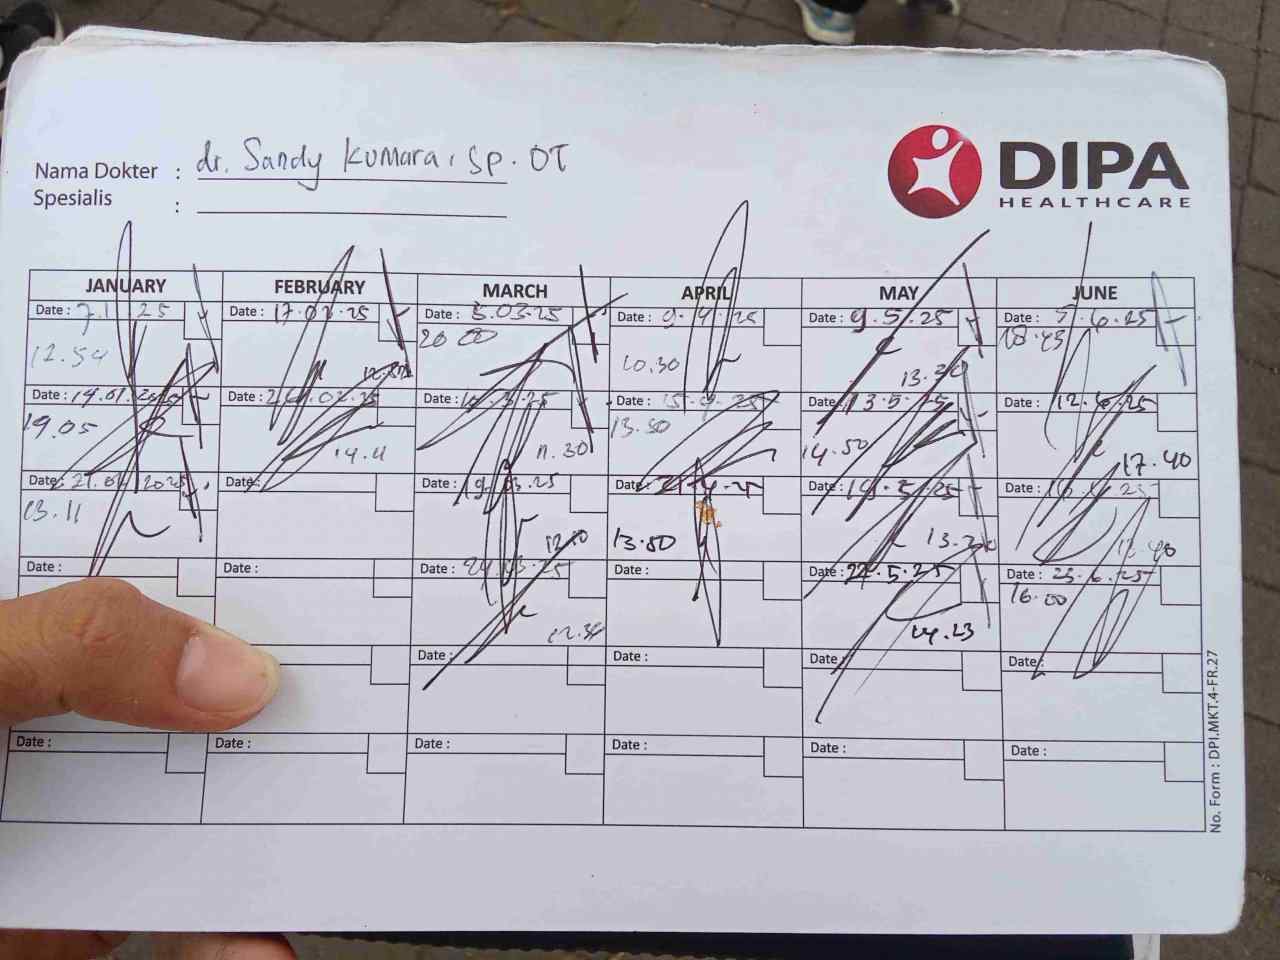 dr. Sandy Kumara, Sp. OT
Nama Dokter :
Spesialis :
DIPA
HEALTHCARE
JANUARY FEBRUARY MARCH APRIL MAY JUNE
Date : Date : 17.02.25 Date : 3.03.25 Date : 9.4.25 Date : 9.5.25 Date : 5.6.25
12.54 20 00 10.30 13.30 18.45
Date : 14.01. Date : 26.02.25 Date : Date : 15.4.25 Date : 13.5.25 Date : 12.6.25
19.05 14.11 11.30 13.50 14.50 17.40
Date : Date : Date : 19.03.25 Date : Date : 19.5.25 Date :
13.11 13.50 13.20 12.40
Date : Date : Date : Date : Date : 22.5.25 Date : 23.6.25
12.34 14.23 16.00
Date : Date : Date : Date :
Date : Date : Date : Date : Date : Date :
No. Form : DPI.MKT.4-FR.27